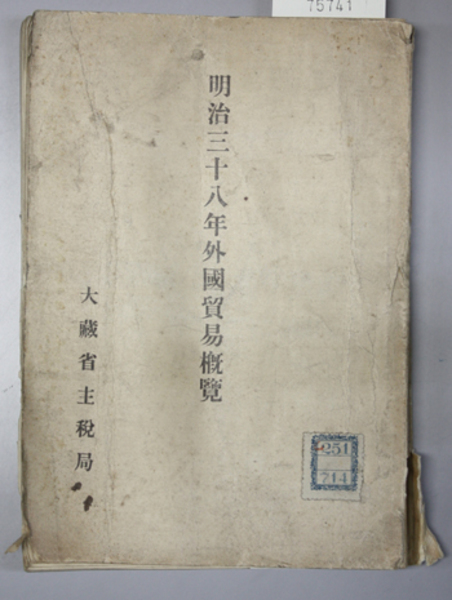 75741
明治三十八年外國貿易概覽
大藏省主稅局
251
714